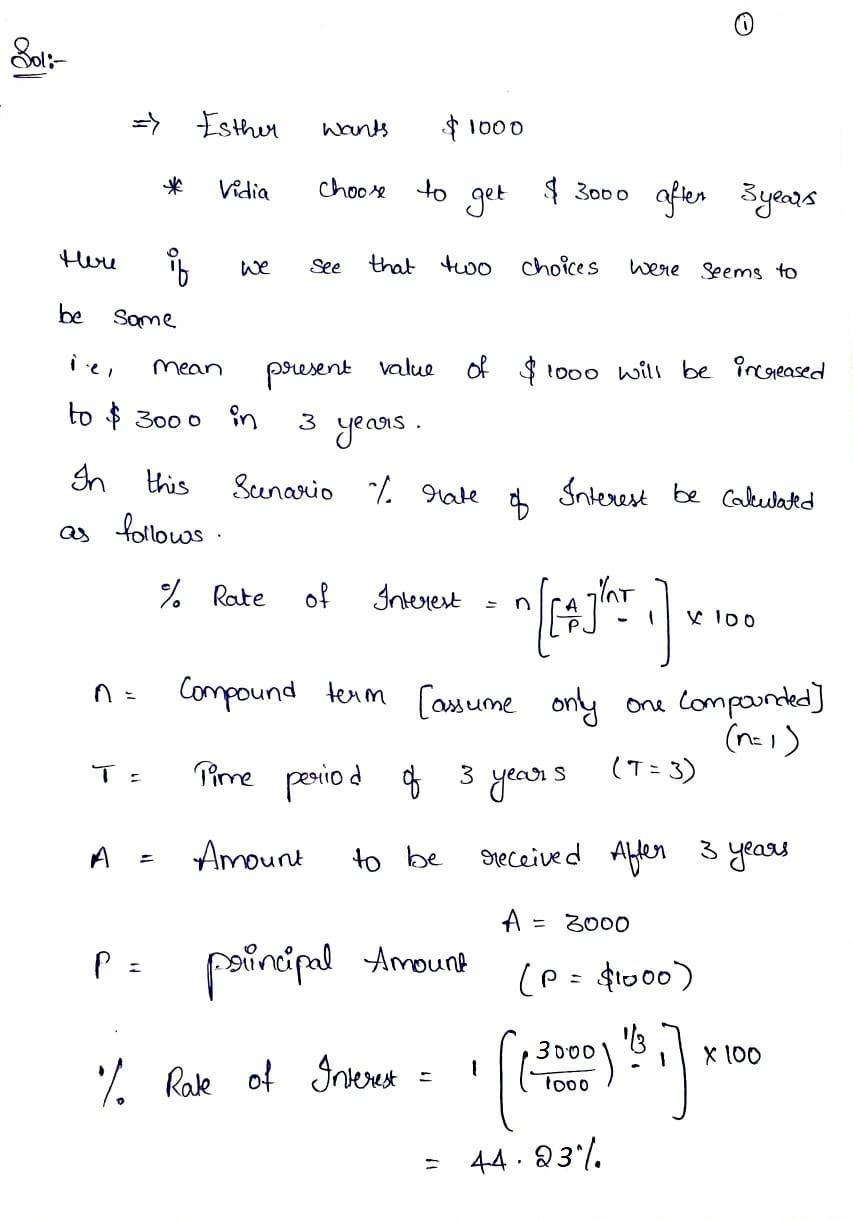 ①
Sol:-
⇒ Esther wants $1000
* Vidia choose to get $3000 after 3 years
Here if we see that two choices were seems to
be same
i.e, mean present value of $1000 will be increased
to $3000 in 3 years.
In this Scenario % rate of Interest be calculated
as follows.
% Rate of Interest = n[[A/P]^1/nT - 1] x 100
n = Compound term [assume only one compounded]
(n=1)
T = Time period of 3 years (T=3)
A = Amount to be received After 3 years
A = 3000
P = principal Amount (P = $1000)
% Rate of Interest = 1[(3000/1000)^1/3 - 1] x 100
= 44.23%